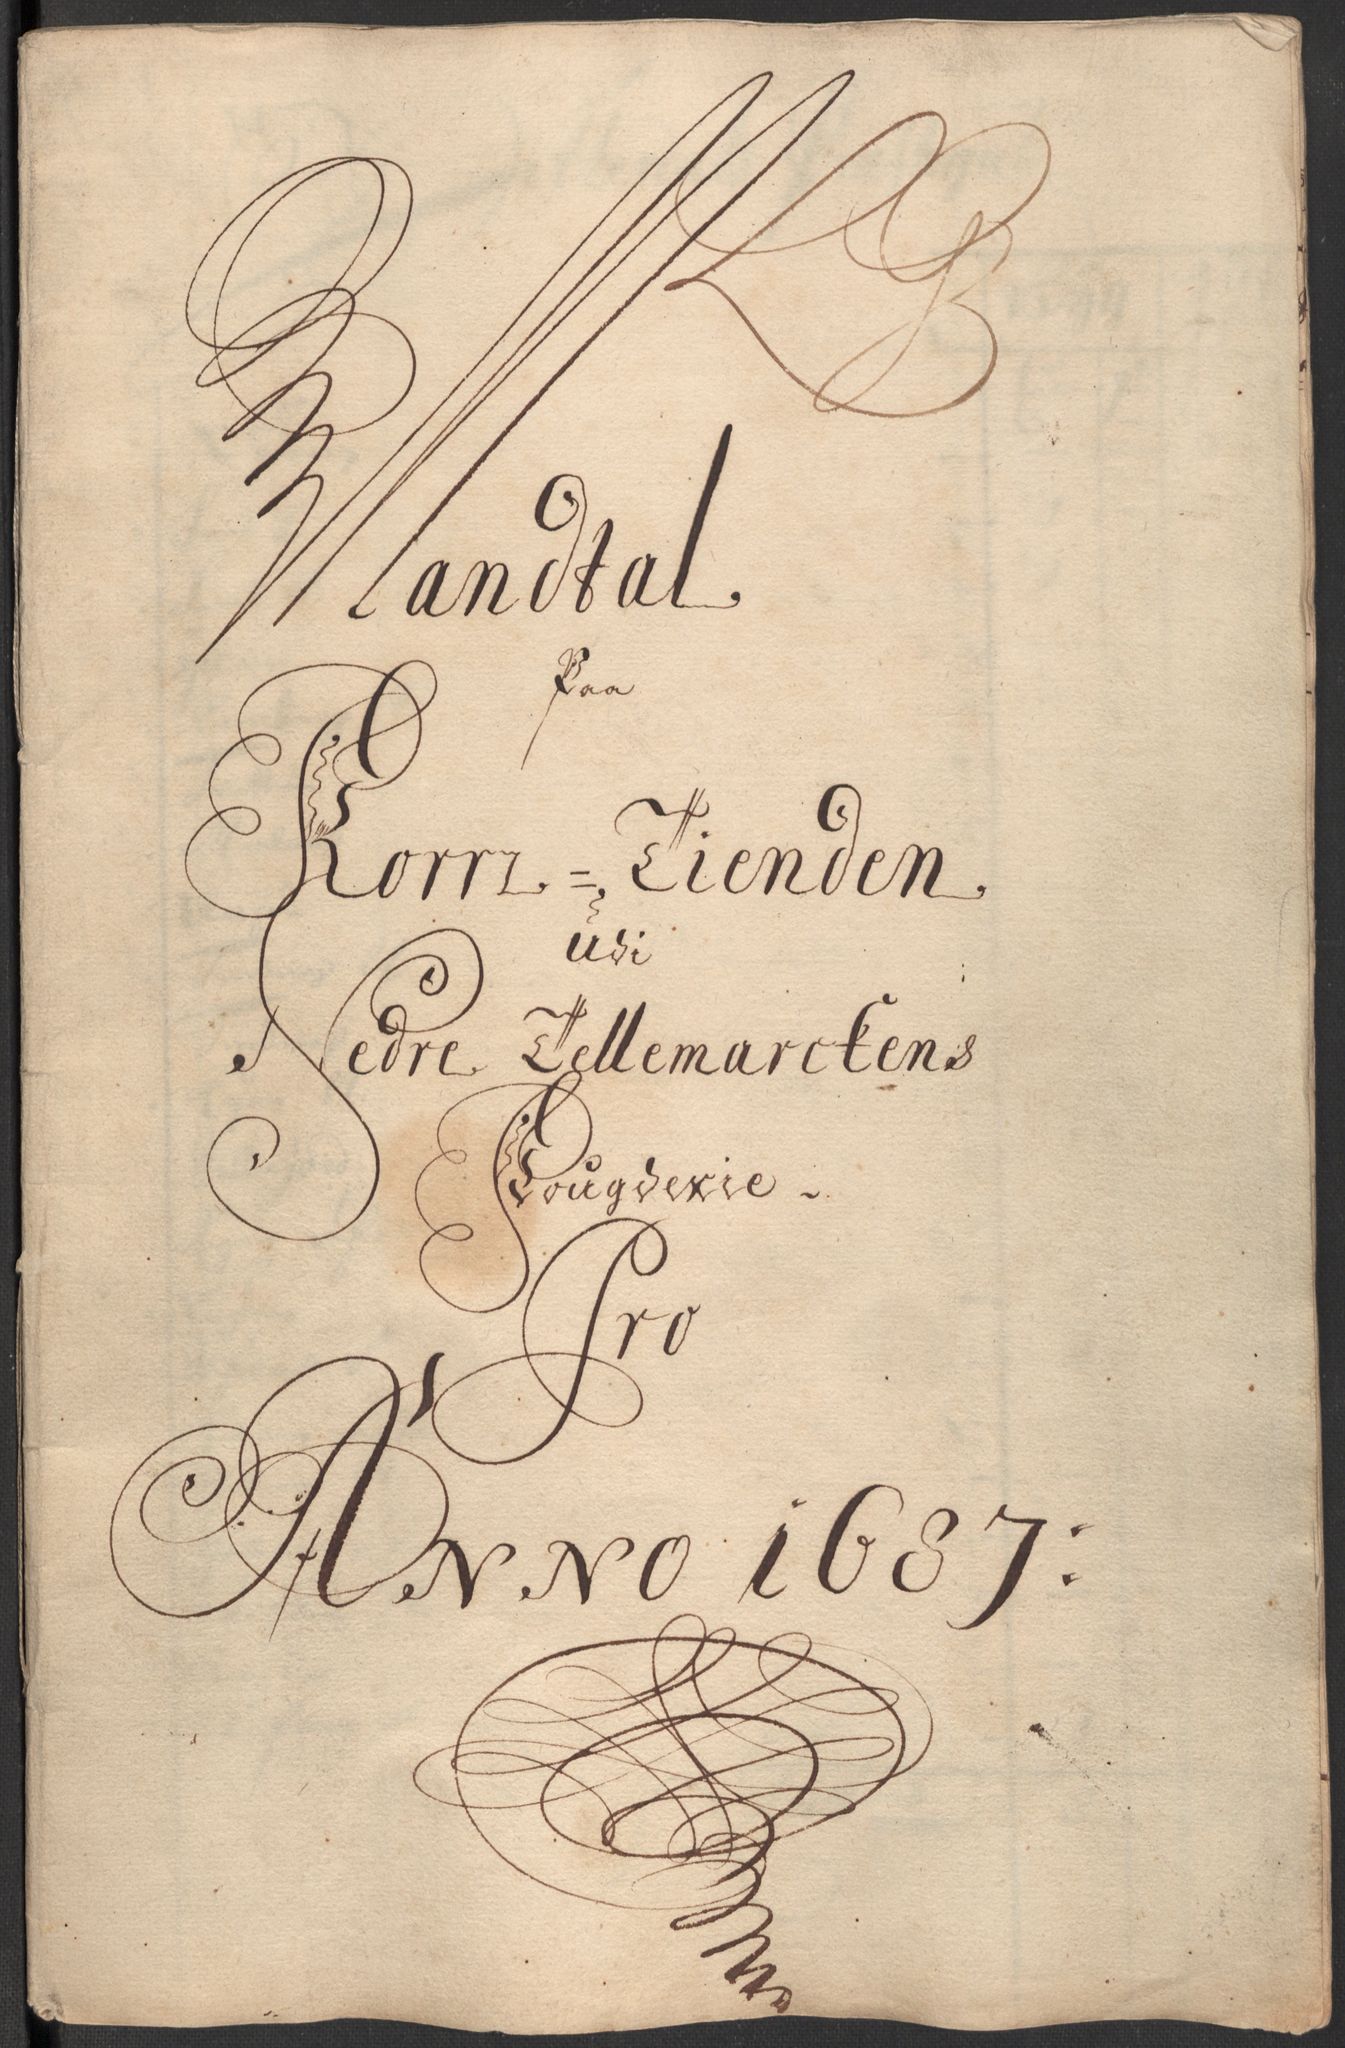 LB
Mandtal
Paa
Korn=Tienden
Udi
Nedre Tellemarckens
Fougderie
Pro
ANNO 1687: